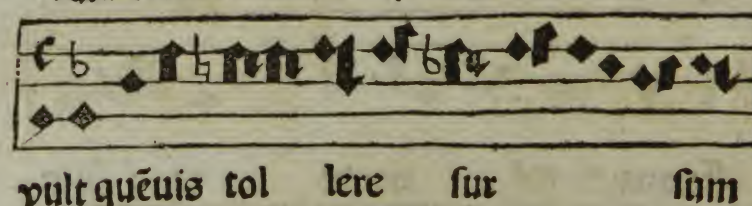 vult quēuis tol lere sur sum